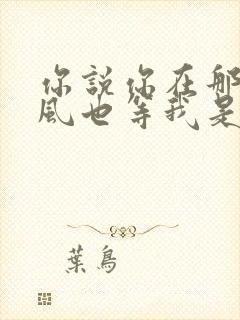 你說你在那
風也等我是
葉鳥